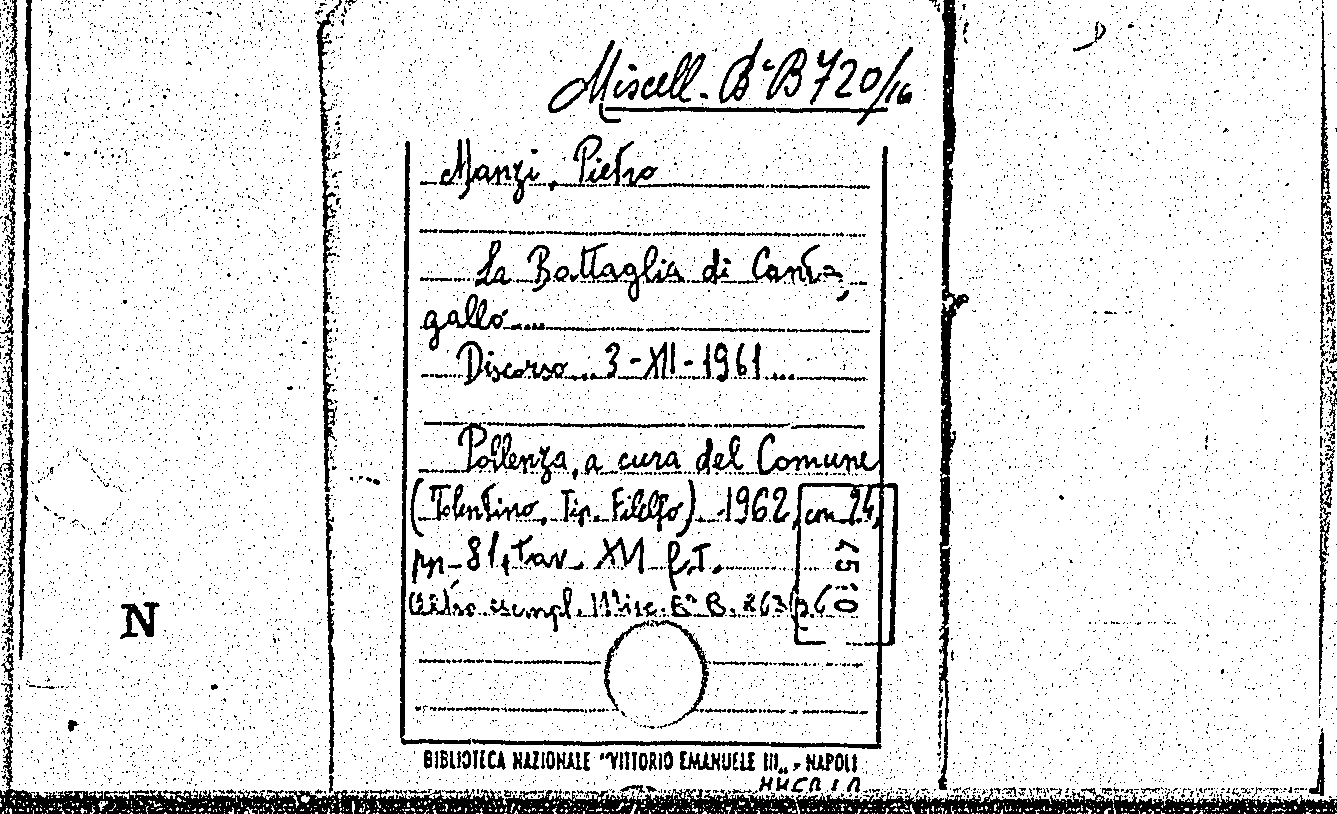 Miscell. Bª B 720/16
Manzi, Pietro
La Battaglia di Canta,
gallo....
Discorso... 3-XII-1961...
Pollenza, a cura del Comune
(Tolentino, Tip. Filelfo). 1962, cm 24,
pp. 81, tav. XVI f.t.
45
0
esempl. Misc. Bª B.
N
BIBLIOTECA NAZIONALE "VITTORIO EMANUELE III„ - NAPOLI